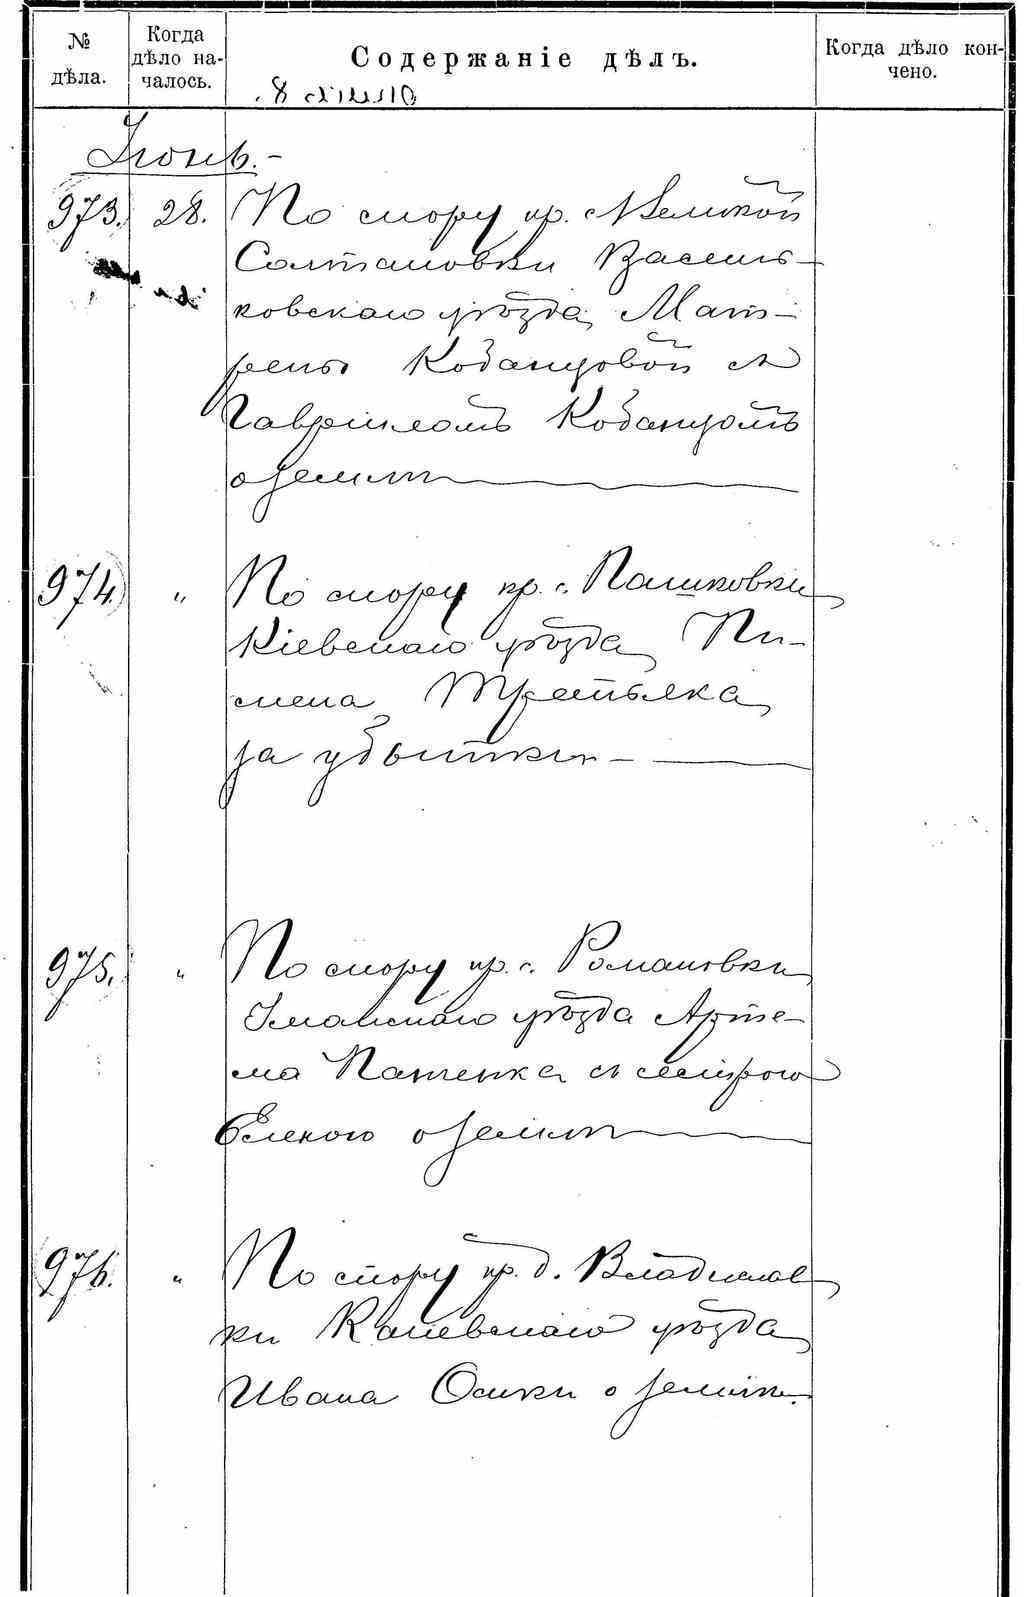 № дѣла.
Когда дѣло на-
чалось.
Содержаніе дѣлъ.
Когда дѣло кон-
чено.
Опись 8.
Іюнь.-
973. 28. По спору кр. м Великой
Солтановки Василь-
ковскаго уѣзда, Мат-
рены Кобанцовой съ
Гавриломъ Кобанцомъ
о землѣ
974. " По спору кр. с. Пашковки
Кіевскаго уѣзда Пи-
мена Третьяка
за убытки -
975. " По спору кр. с. Романовки
Уманскаго уѣзда Арте-
ма Патенка съ сестрою
Еленою о землѣ
976. " По спору кр. д. Владислав
ки Каневскаго уѣзда
Ивана Осики о землѣ.